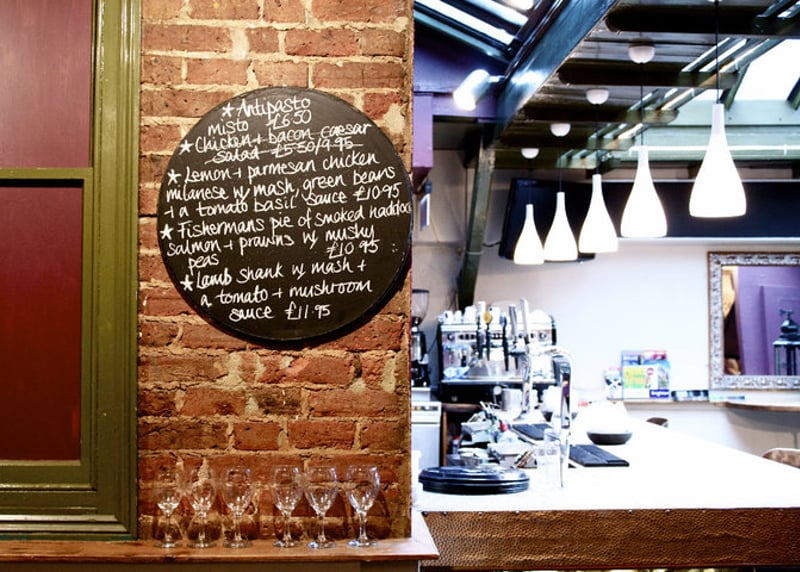 * Antipasto
misto £6.50
* Chicken + bacon caesar
salad £5.50/9.95
* Lemon + parmesan chicken
milanese w/ mash, green beans
+ a tomato basil sauce £10.95
* Fishermans pie of smoked haddock
salmon + prawns w/ mushy
peas £10.95
* Lamb shank w/ mash +
a tomato + mushroom
sauce £11.95